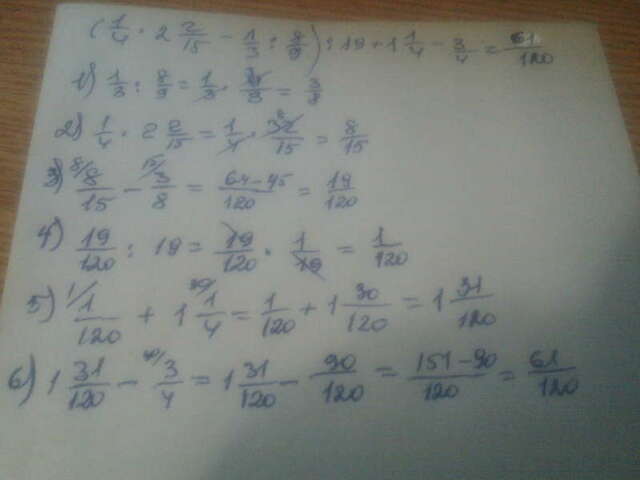 (1/4 · 2 2/15 - 1/3 : 8/9) : 19 + 1 1/4 - 3/4 = 61/120
1) 1/3 : 8/9 = 1/3 · 9/8 = 3/8
2) 1/4 · 2 2/15 = 1/4 · 32/15 = 8/15
3) 8/15 - 3/8 = 64-45/120 = 19/120
4) 19/120 : 19 = 19/120 · 1/19 = 1/120
5) 1/120 + 1 1/4 = 1/120 + 1 30/120 = 1 31/120
6) 1 31/120 - 3/4 = 1 31/120 - 90/120 = 151-90/120 = 61/120